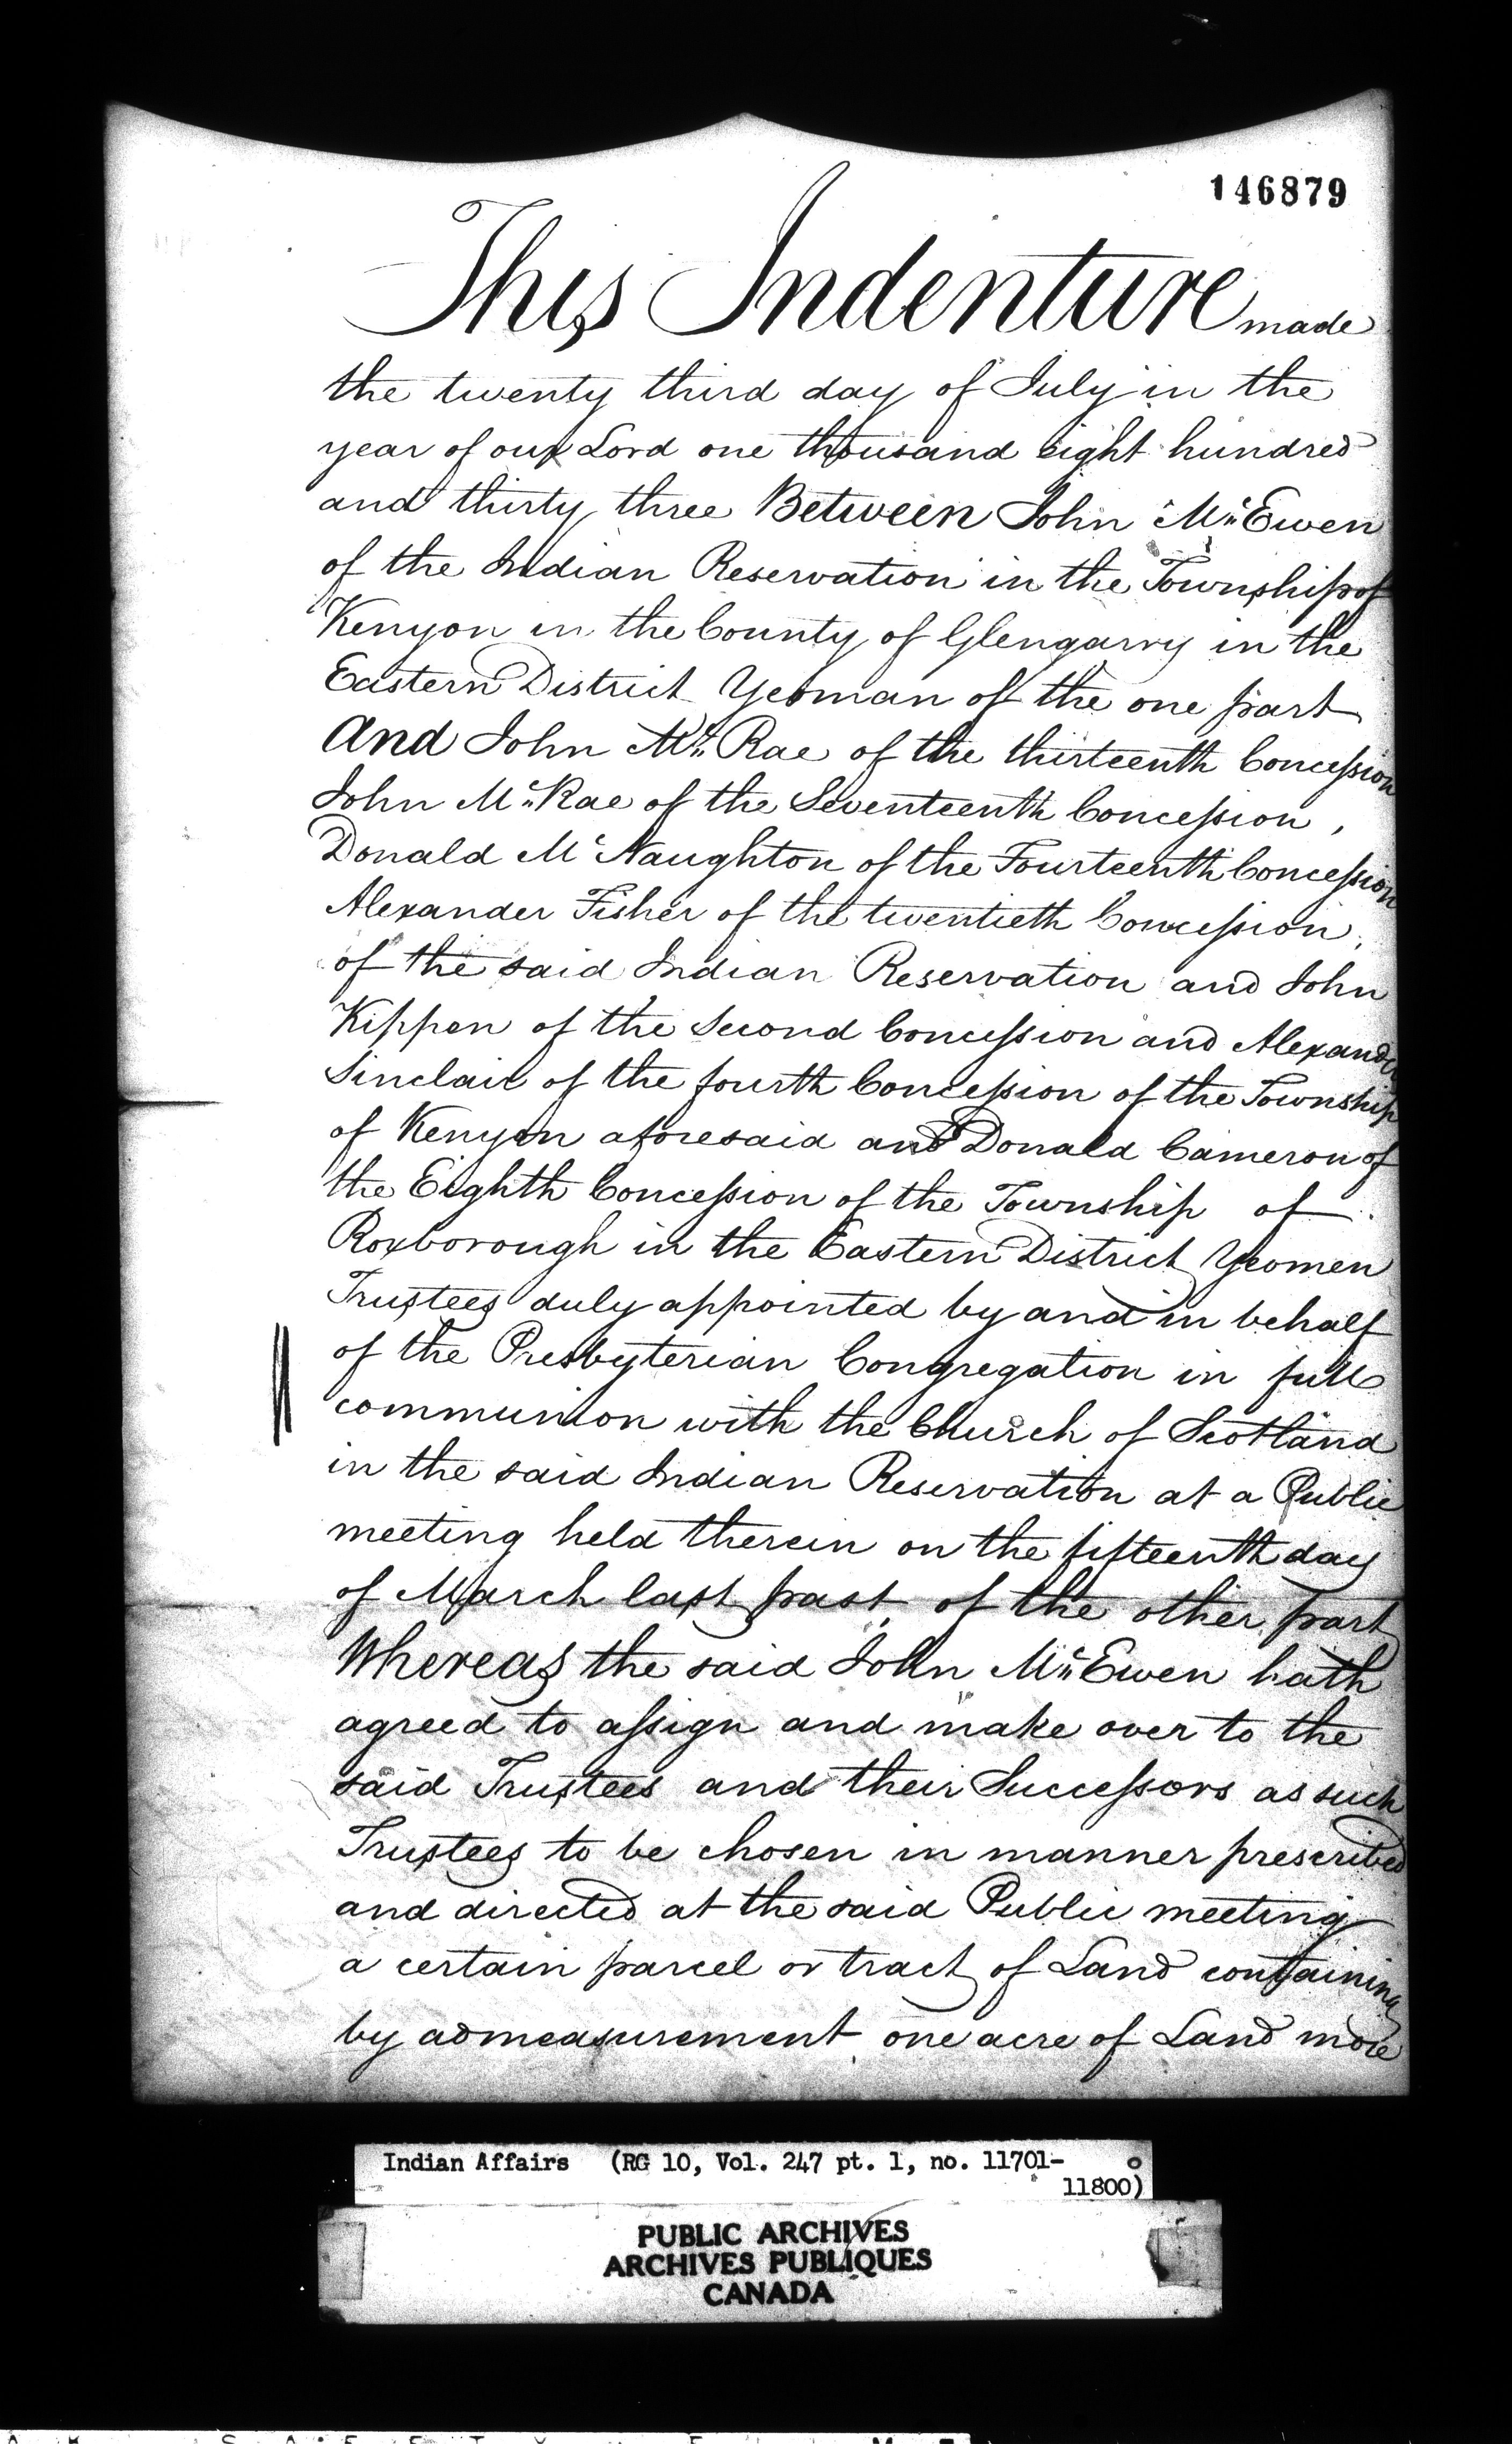 146879
This Indenture made
the twenty third day of July in the
year of our Lord one thousand eight hundred
and thirty three Between John McEwen
of the Indian Reservation in the Township of
Kenyon in the County of Glengarry in the
Eastern District Yeoman of the one part
And John McRae of the thirteenth Concession
John McRae of the Seventeenth Concession,
Donald McNaughton of the Fourteenth Concession
Alexander Fisher of the twentieth Concession,
of the said Indian Reservation and John
Kippen of the Second Concession and Alexander
Sinclair of the fourth Concession of the Township
of Kenyon aforesaid and Donald Cameron of
the Eighth Concession of the Township of
Roxborough in the Eastern District Yeomen
Trustees duly appointed by and in behalf
of the Presbyterian Congregation in full
communion with the Church of Scotland
in the said Indian Reservation at a Public
meeting held therein on the fifteenth day
of March last past of the other part
Whereas the said John McEwen hath
agreed to assign and make over to the
said Trustees and their Successors as such
Trustees to be chosen in manner prescribed
and directed at the said Public meeting
a certain parcel or tract of Land containing
by admeasurement one acre of Land more
Indian Affairs (RG 10, Vol. 247 pt. 1, no. 11701-
11800)
PUBLIC ARCHIVES
ARCHIVES PUBLIQUES
CANADA